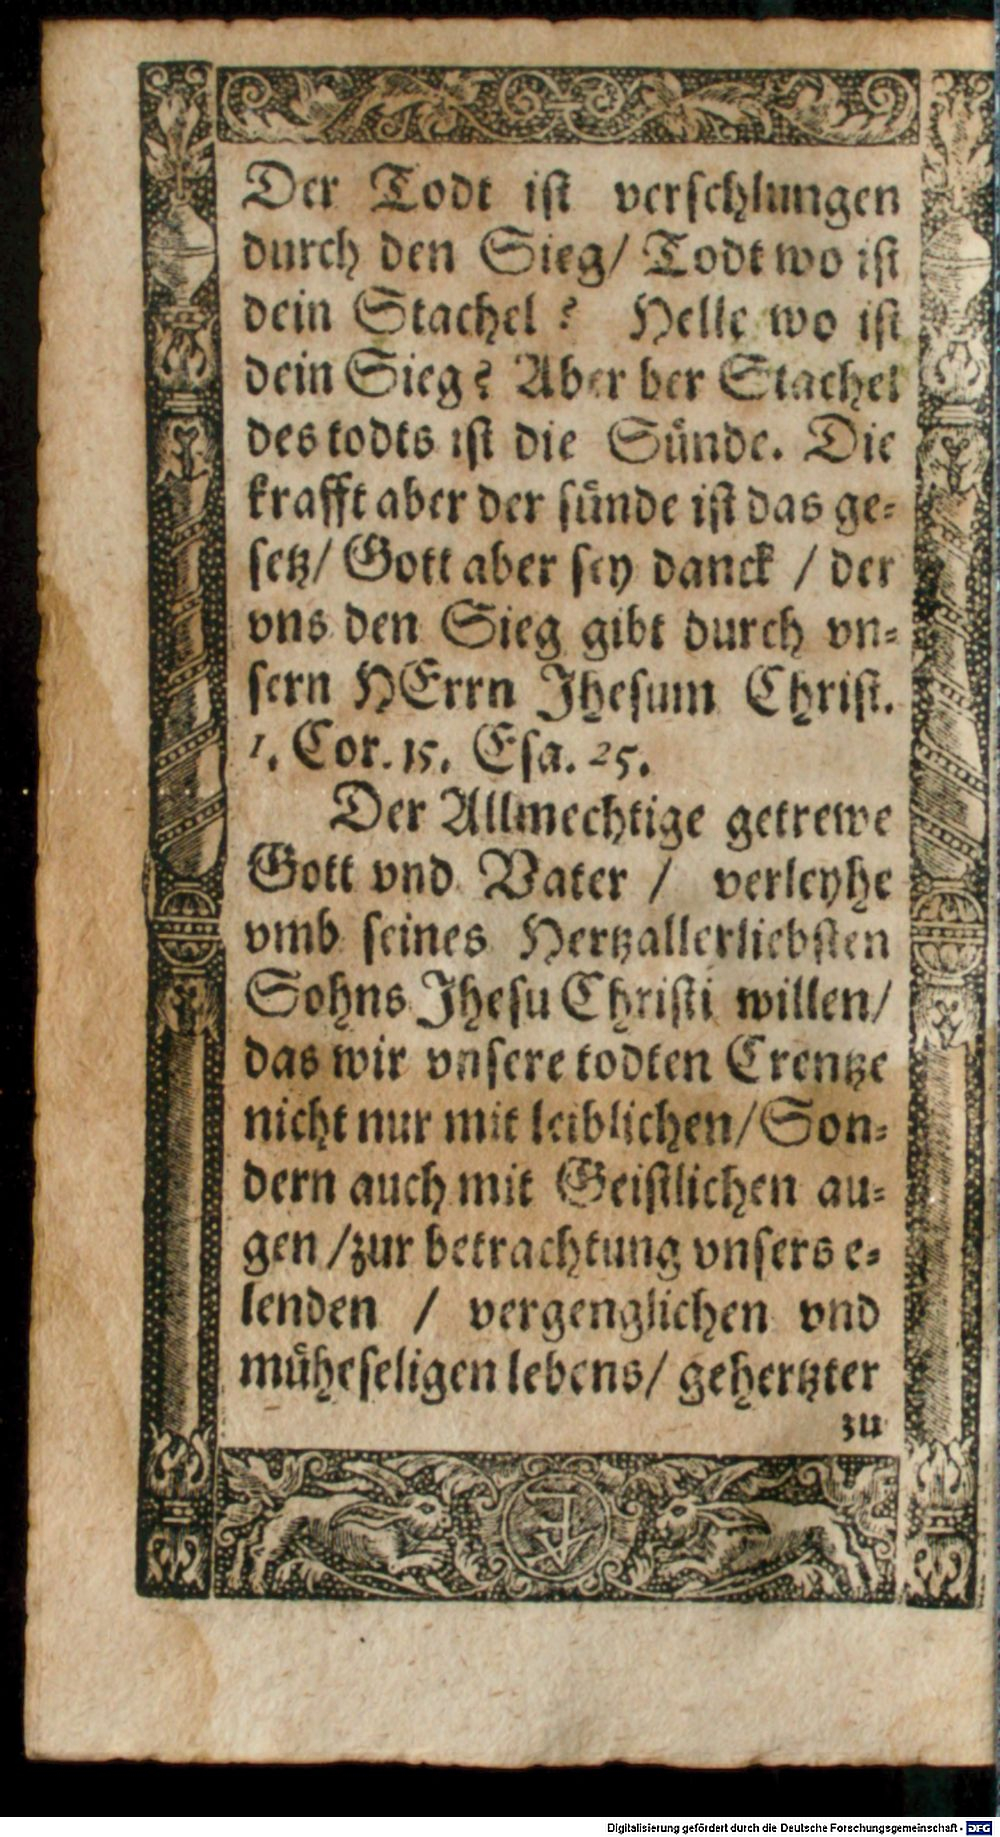 Der Todt ist verschlungen
durch den Sieg/ Todt wo ist
dein Stachel? Helle wo ist
dein Sieg? Aber ber Stachel
des todts ist die Sünde. Die
krafft aber der sünde ist das ge-
setz/ Gott aber sey danck / der
vns den Sieg gibt durch vn-
sern HErrn Jhesum Christ.
1. Cor. 15. Esa. 25.
Der Allmechtige getrewe
Gott vnd Vater / verleyhe
vmb seines Hertzallerliebsten
Sohns Jhesu Christi willen/
das wir vnsere todten Crentze
nicht nur mit leiblichen/Son-
dern auch mit Geistlichen au-
gen /zur betrachtung vnsers e-
lenden / vergenglichen vnd
müheseligen lebens/ gehertzter
zu
Digitalisierung gefördert durch die Deutsche Forschungsgemeinschaft - DFG